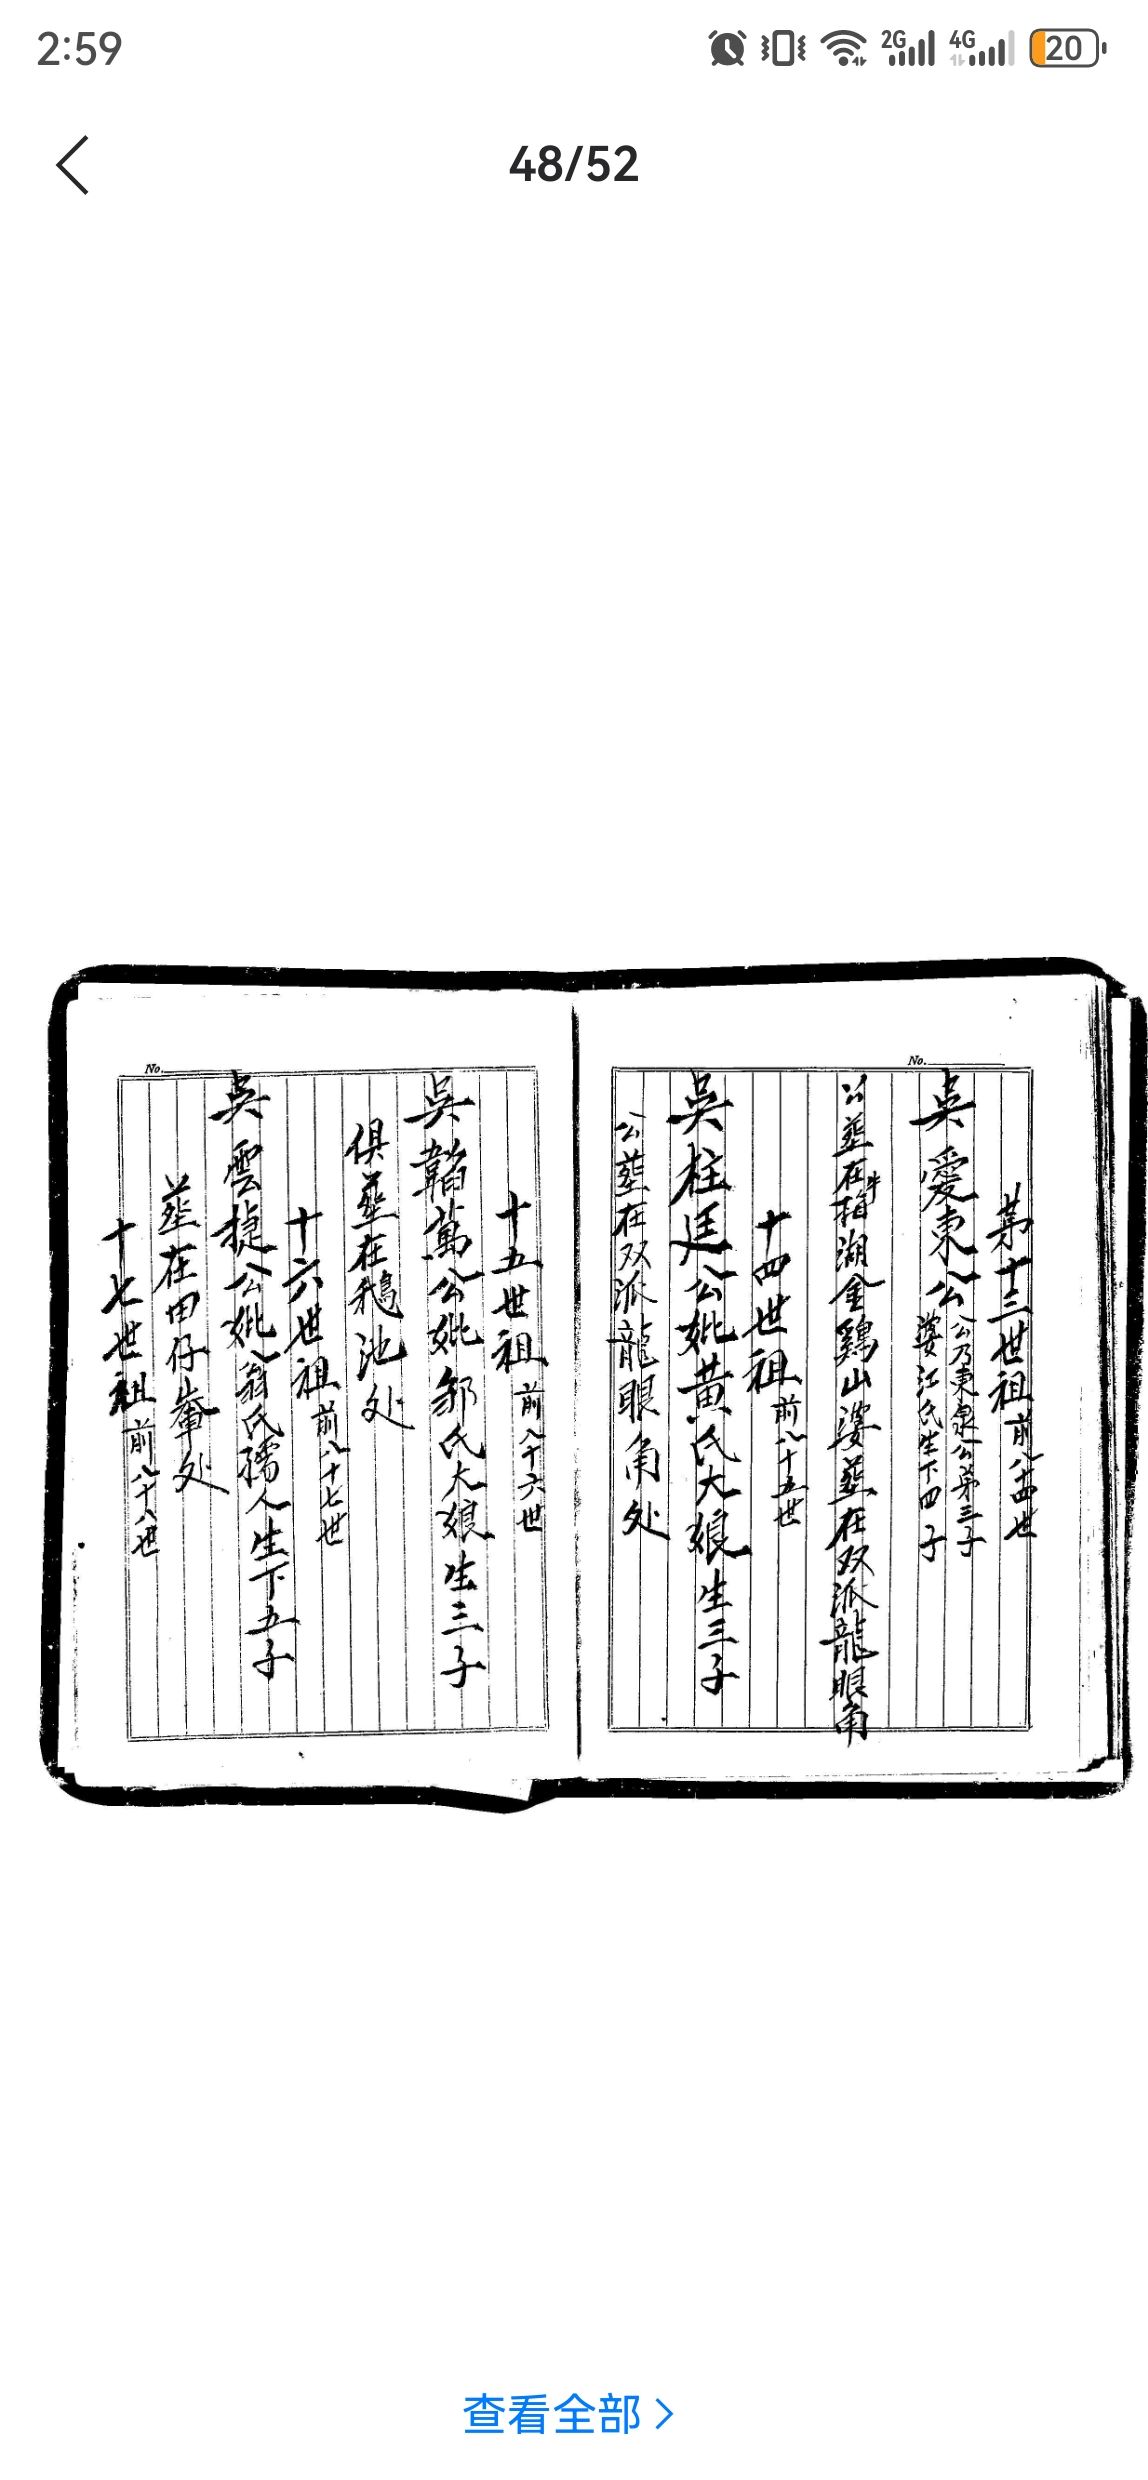 2:59
2G
4G
20
48/52
No.
第十三世祖 前八十四世
吳愛東公 公乃東泉公第三子
婆江氏生下四子
公葬在牛梅湖金鷄山婆葬在双派龍眼角
十四世祖 前八十五世
吳柱廷公妣黄氏大娘生三子
公葬在双派龍眼角处
No.
十五世祖 前八十六世
吳韜萬公妣鄒氏大娘生三子
俱葬在鵝池处
十六世祖 前八十七世
吳雲捷公妣翁氏孺人生下五子
葬在田仔輋处
十七世祖 前八十八世
查看全部